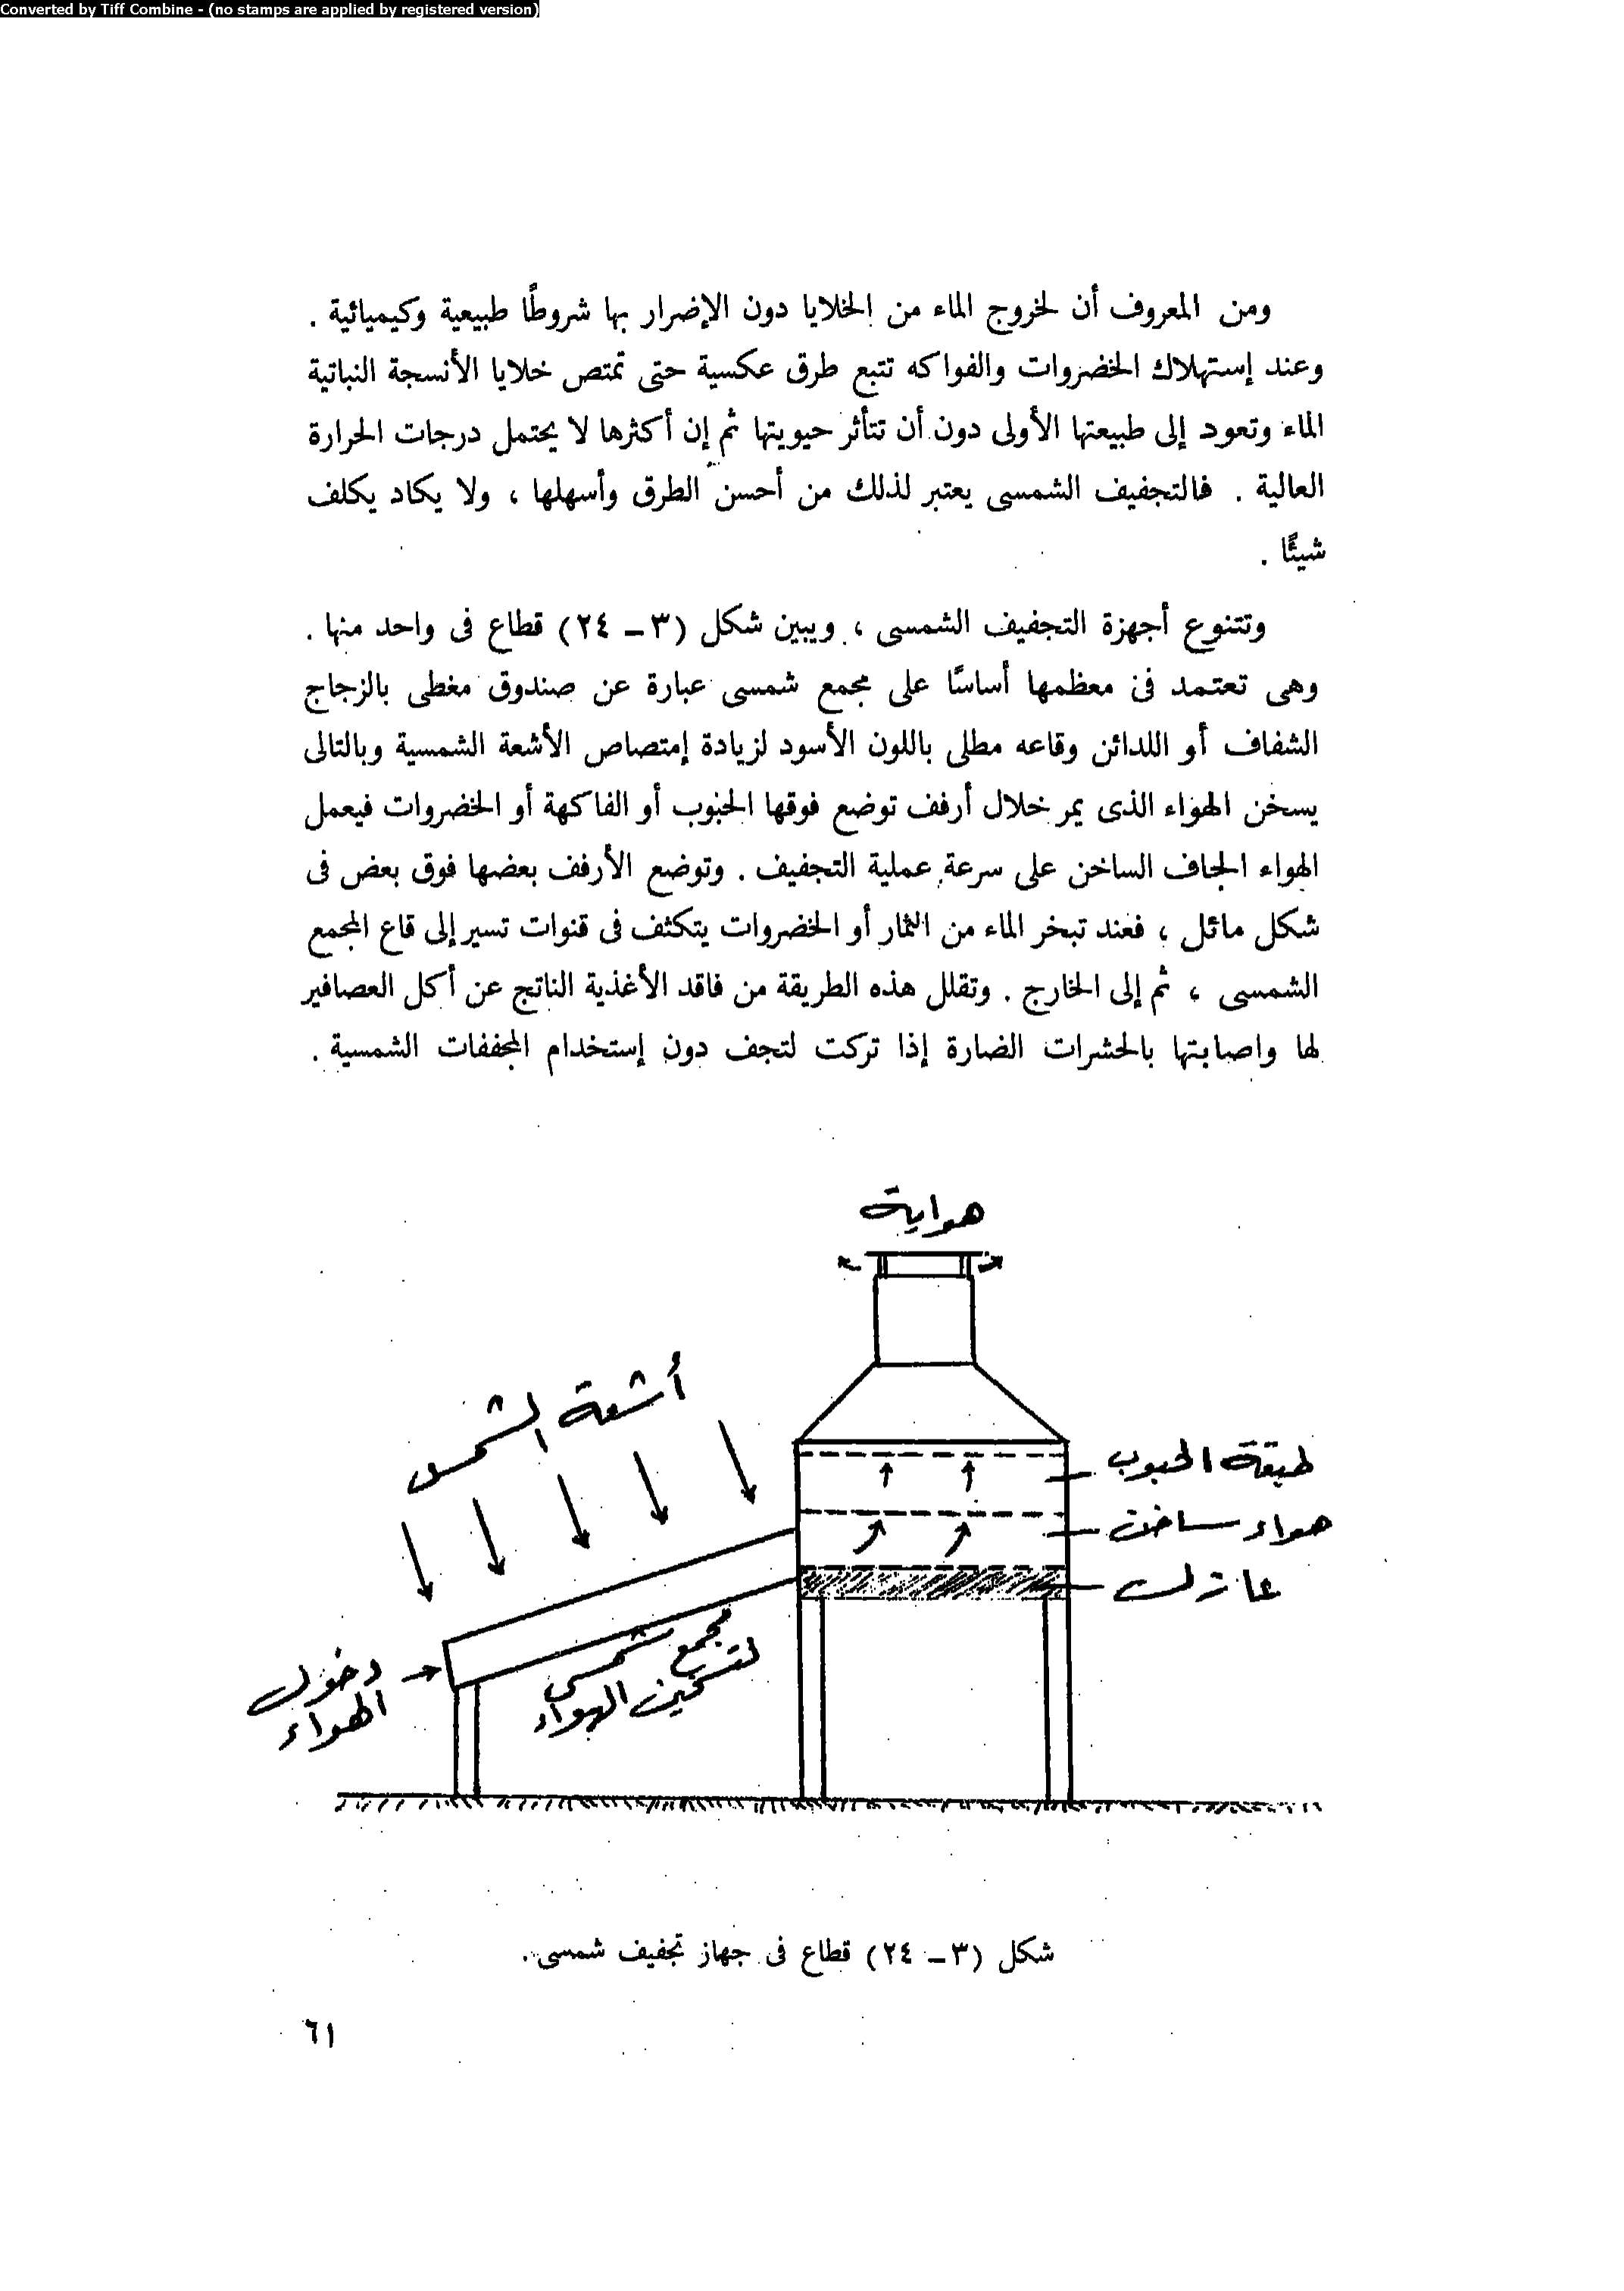 Converted by Tiff Combine - (no stamps are applied by registered version)
ومن المعروف أن لخروج الماء من الخلايا دون الإضرار بها شروطًا طبيعية وكيميائية .
وعند إستهلاك الخضروات والفواكه تتبع طرق عكسية حتى تمتص خلايا الأنسجة النباتية
الماء وتعود إلى طبيعتها الأولى دون أن تتأثر حيويتها ثم إن أكثرها لا يحتمل درجات الحرارة
العالية . فالتجفيف الشمسى يعتبر لذلك من أحسن الطرق وأسهلها ، ولا يكاد يكلف
شيئًا .
وتتنوع أجهزة التجفيف الشمسى ، ويبين شكل (٣ – ٢٤) قطاع فى واحد منها .
وهى تعتمد فى معظمها أساسًا على مجمع شمسى عبارة عن صندوق مغطى بالزجاج
الشفاف أو اللدائن وقاعه مطلى باللون الأسود لزيادة إمتصاص الأشعة الشمسية وبالتالى
يسخن الهواء الذى يمر خلال أرفف توضع فوقها الحبوب أو الفاكهة أو الخضروات فيعمل
الهواء الجاف الساخن على سرعة عملية التجفيف . وتوضع الأرفف بعضها فوق بعض فى
شكل مائل ، فعند تبخر الماء من الثمار أو الخضروات يتكثف فى قنوات تسير إلى قاع المجمع
الشمسى ، ثم إلى الخارج . وتقلل هذه الطريقة من فاقد الأغذية الناتج عن أكل العصافير
لها واصابتها بالحشرات الضارة إذا تركت لتجف دون إستخدام المجففات الشمسية .
هواية
أشعة الشمس
طبقة الحبوب
هواء ساخن
عازل
مجمع شمسى
لتسخين الهواء
دخول
الهواء
شكل (٣ – ٢٤) قطاع فى جهاز تجفيف شمسى .
٦١